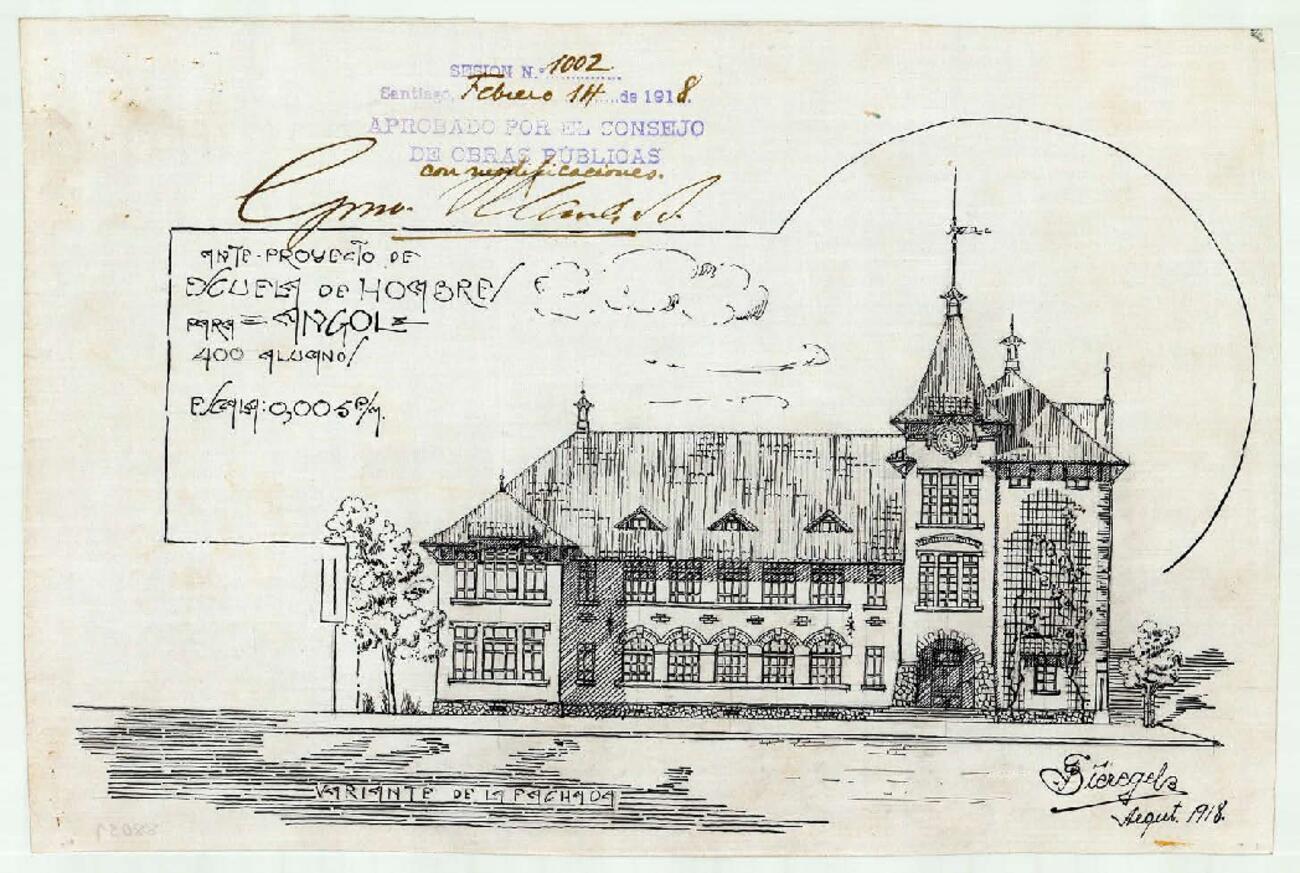 SESION N.º 1002
Santiago, Febrero 14 de 1918.
APROBADO POR EL CONSEJO
DE OBRAS PÚBLICAS
con modificaciones.
ANTE-PROYECTO DE
ESCUELA DE HOMBRES
PARA = ANGOL =
400 ALUMNOS
ESCALA: 0,005 P/M.
VARIANTE DE LA FACHADA
Arqut. 1918.
88039